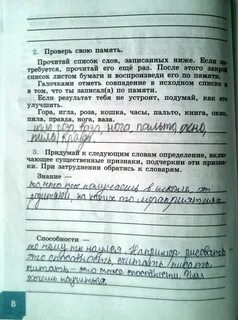 2. Проверь свою память.
Прочитай список слов, записанных ниже. Если по-
требуется, прочитай его ещё раз. После этого закрой
список листом бумаги и воспроизведи его по памяти.
Галочками отметь совпадение в исходном списке и
в том, что ты записал(а) по памяти.
Если результат тебя не устроит, подумай, как его
улучшить.
Гора, игла, роза, кошка, часы, пальто, книга, окно,
пила, правда, нога, ваза.
игла роза, ваза, нога, пальто окно,
пила, правда.
3. Придумай к следующим словам определение, вклю-
чающее существенные признаки, подчеркни эти призна-
ки. При затруднении обратись к словарям.
Знание —
то что ты получаешь в школе, от
родителей, на каких то мероприятиях
Способности —
то чему ты научся. Например рисовать –
это способность, считать, писать
читать – это тоже способности. Или
хочешь научиться.
8